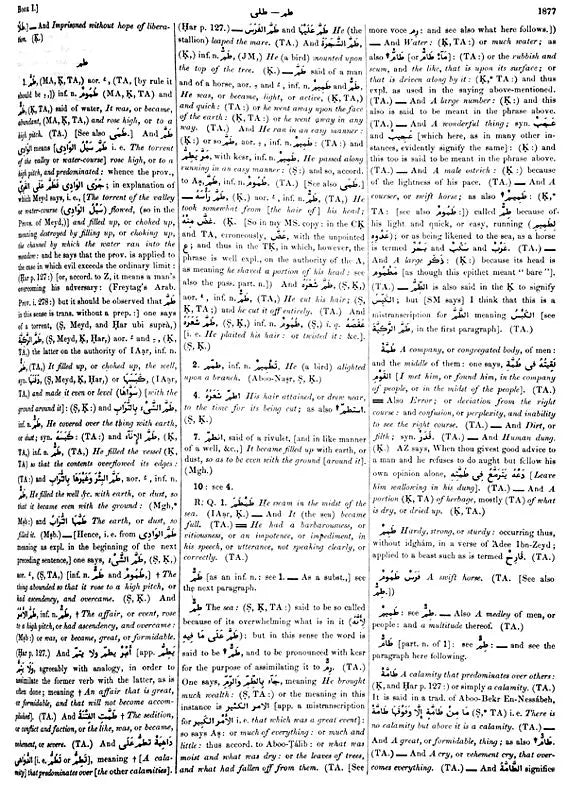 BOOK I.]
طمر — طلى
1877
— And Imprisoned without hope of liberation. (Ḳ.)
طم
1. طَمَّ, (MA, Ḳ, TA,) aor. (TA, [by rule it
should be]) inf. n. طُمُومٌ (MA, Ḳ, TA) and
طَمٌّ, (Ḳ, TA,) said of water, It was, or became,
abundant, (MA, Ḳ, TA,) and rose high, or to a
high pitch. (TA.) [See also] And
means [i. e. The torrent
of the valley or water-course] rose high, or to a
high pitch, and predominated: whence the prov.,
جَرَى الوَادِى فَطَمَّ عَلَى القَرِىِّ; in explanation of
which Meyd says, i. e., [The torrent of the valley
or water-course (سَيْلُ الوَادِى) flowed, (so in the
Prov. of Meyd,)] and filled up, or choked up,
meaning destroyed by filling up, or choking up,
the channel by which the water ran into the
meadow: and he says that the prov. is applied to
the case in which evil exceeds the ordinary limit:
(Ḥar p. 127:) [or, accord. to Z, it means a man's
overcoming his adversary: (Freytag's Arab.
Prov. i. 278:) but it should be observed that طَمَّ
in this sense is trans. without a prep.:] one says
of a torrent, (Ṣ, Meyd, and Ḥar ubi suprà,)
(Ṣ, Meyd, Ḳ, Ḥar,) aor. and (Ḳ,
TA, the latter on the authority of IAạr, TA,) inf. n.
طَمٌّ, (TA,) It filled up, or choked up, the well,
(Ṣ, Meyd, Ḳ, Ḥar,) or (TA,)
and made it even or level (سَوَّاهَا) [with the
ground around it]: (Ṣ, Ḳ:) and طَمَّ الشَّىْءَ بِالتُّرَابِ,
inf. n. طَمٌّ, He covered over the thing with earth,
or dust; syn. كَبَسَهُ: (TA:) and طَمَّ الإِنَآءَ, (Ḳ,
TA,) inf. n. طَمٌّ, (TA,) He filled the vessel (Ḳ,
TA) so that the contents overflowed its edges:
(TA:) and طَمَّ البِئْرَ وَغَيْرَهَا بِالتُّرَابِ, aor. inf. n.
طَمٌّ, He filled the well &c. with earth, or dust, so
that it became even with the ground: (Mgh,*
Mṣb:) and طَمَّهَا التُّرَابُ The earth, or dust, so
filled it. (Mṣb.) — [Hence, i. e. from
meaning as expl. in the beginning of the next
preceding sentence,] one says, طَمَّ الشَّىْءُ, (Ṣ, Ḳ,)
aor. (Ṣ, TA,) [inf. n. طَمٌّ and طُمُومٌ,] † The
thing abounded so that it rose to a high pitch, or
had ascendency, and overcame. (Ṣ, Ḳ.) And
طَمَّ الأَمْرُ, inf. n. طَمٌّ, † The affair, or event, rose
to a high pitch, or had ascendency, and overcame:
(Mṣb:) or was, or became, great, or formidable.
(Ḥar p. 127.) And [app.
agreeably with analogy, in order to
assimilate the former verb with the latter, as is
often done; meaning † An affair that is great,
or formidable, and that will not become accomplished].
(TA.) And طَمَّتِ الفِتْنَةُ † The sedition,
or conflict and faction, or the like, was, or became,
vehement, or severe. (TA.) And
[i. e. or] meaning † [A calamity]
that predominates over [the other calamities].
(Ḥar p. 127.) — And He (the
stallion) leaped the mare. (TA.) And طَمَّ الشَّجَرَةَ
(Ḳ,) inf. n. طَمٌّ (JM,) He (a bird) mounted upon
the top of the tree. (Ḳ.) — طَمَّ said of a man
and of a horse, aor. and inf. n. طَمِيمٌ and
He was, or became, light, or active, (Ḳ, TA,)
and quick: (TA:) or he went away upon the face
of the earth: (Ḳ, TA:) or he went away in any
way. (TA.) And He ran in an easy manner:
(Ḳ:) or so طَمَّ, aor. inf. n. طَمِيمٌ: (TA:) and
مَرَّ يَطِمُّ, with kesr, inf. n. طَمِيمٌ, He passed along
running in an easy manner: (Ṣ:) and so, accord.
to Aṣ, inf. n. طُمُومٌ. (TA.) [See also]
— طَمَّ رَأْسَهُ (Ḳ,) aor. inf. n. طَمٌّ, (TA,) He
took somewhat from [the hair of] his head;
غَضَّ مِنْهُ. (Ḳ. [So in my MS. copy: in the CK
and TA, erroneously, with the unpointed
ع; and thus in the TK, in which, however, the
phrase is well expl., on the authority of the A,
as meaning he shaved a portion of his head: see
also the pass. part. n.]) And طَمَّ شَعَرَهُ (Ṣ, Ḳ,)
aor. inf. n. طَمٌّ, (TA,) He cut his hair; (Ṣ,
Ḳ, TA;) and he cut it off entirely. (TA.) And
طَمَّ شَعَرَهُ (Ṣ, Ḳ,) inf. n. طُمُومٌ, (Ṣ,) i. q. عَقَصَهُ
[i. e. He plaited his hair: or twisted it: &c.].
(Ṣ, Ḳ.)
2. طَمَّمَ, inf. n. تَطْمِيمٌ, He (a bird) alighted
upon a branch. (Aboo-Naṣr, Ṣ, Ḳ.)
4. أَطَمَّ شَعَرُهُ His hair attained, or drew near,
to the time for its being cut; as also اِسْتَطَمَّ.
(Ṣ, Ḳ.)
7. اِنْطَمَّ, said of a rivulet, [and in like manner
of a well, &c.,] It became filled up with earth, or
dust, so as to be even with the ground [around it].
(Mgh.)
10: see 4.
R. Q. 1. طَمْطَمَ He swam in the midst of the
sea. (IAạr, Ḳ.) — And It (the sea) became
full. (TA.) — He had a barbarousness, or
vitiousness, or an impotence, or impediment, in
his speech, or utterance, not speaking clearly, or
correctly. (TA.)
طَمٌّ [as an inf. n.: see 1. — As a subst.,] see
the next paragraph.
طِمٌّ The sea: (Ṣ, Ḳ, TA:) said to be so called
because of its overwhelming what is in it (لِأَنَّهُ
طَمَّ عَلَى مَا فِيهِ): but in this sense the word is
said to be طَمٌّ, and to be pronounced with kesr
for the purpose of assimilating it to رِمٌّ. (TA.)
One says, جَآءَ بِالطِّمِّ وَالرِّمِّ, meaning, He brought
much wealth: (Ṣ, TA:) or the meaning in this
instance is [app. a mistranscription
for الأَمْر الكَبِير i. e. that which was a great event]:
so says Aṣ: or much of everything: or much and
little: thus accord. to Aboo-Ṭálib: or what was
moist and what was dry: or the leaves of trees,
and what had fallen off from them. (TA. [See
more voce رِمٌّ: and see also what here follows.])
— And Water: (Ḳ, TA:) or much water; as
also: (TA:) or the rubbish and
scum, and the like, that is upon its surface; or
that is driven along by it: (Ḳ,* TA:) and thus
expl. as used in the saying above-mentioned.
(TA.) — And A large number: (Ḳ:) and this
also is said to be meant in the phrase above.
(TA.) — And A wonderful thing; syn. عَجَبٌ and
عَجِيبٌ [which here, as in many other instances,
evidently signify the same]: (Ḳ:) and
this too is said to be meant in the phrase above.
(TA.) — And A male ostrich: (Ḳ:) because
of the lightness of his pace. (TA.) — And A
courser, or swift horse; as also طَمِيمٌ: (Ḳ,*
TA: [see also طَمُومٌ:]) called طِمٌّ because of
his light and quick, or easy, running (لِطَمِيمِ
عَدْوِهِ); or as being likened to the sea, as a horse
is termed بَحْرٌ and سَكْبٌ and غَرْبٌ. (TA.) —
And A large ذَكَر: (Ḳ:) because its head is
مَطْمُوم [as though this epithet meant “ bare ”].
(TA.) — الطِّمُّ is also said in the Ḳ to signify
الكَبْسُ; but [SM says] I think that this is a
mistranscription for الطَّمُّ meaning الكَبْسُ [see
طَمَّ الرَّكِيَّةَ, in the first paragraph]. (TA.)
طَمَّةٌ A company, or congregated body, of men:
and the middle of them: one says, لَقِيتُهُ فِى طَمَّةِ
القَوْمِ [I met him, or found him, in the company
of people, or in the midst of the people]. (TA.)
— Also Error: or deviation from the right
course: and confusion, or perplexity, and inability
to see the right course. (TA.) — And Dirt, or
filth; syn. قَذَرٌ. (TA.) — And Human dung.
(Ḳ.) AZ says, When thou givest good advice to
a man and he refuses to do aught but follow his
own opinion alone, دَعْهُ يَتَرَمَّعُ فِى طُمَّتِهِ [Leave
him wallowing in his dung]. (TA.) — And A
portion (Ḳ, TA) of herbage, mostly (TA) of what
is dry, or dried up. (Ḳ, TA.)
Hardy, strong, or sturdy: occurring thus,
without idghám, in a verse of 'Adee Ibn-Zeyd;
applied to a beast such as is termed قَارِح. (TA.)
فَرَسٌ طَمُومٌ A swift horse. (TA. [See also
طِمٌّ.])
طَمِيمٌ: see طِمٌّ. — Also A medley of men, or
people: and a multitude thereof. (TA.)
طَامٌّ [part. n. of 1]: see طِمٌّ: — and see the
paragraph here following.
طَامَّةٌ A calamity that predominates over others:
(Ḳ, and Ḥar p. 127:) or simply a calamity. (TA.)
It is said in a trad. of Aboo-Bekr En-Nessábeh,
مَا مِنْ طَامَّةٍ إِلَّا وَفَوْقَهَا طَامَّةٌ (Ṣ,* TA) i. e. There is
no calamity but above it is a calamity. (TA.) —
And A great, or formidable, thing; as also طَامٌّ.
(TA.) — And A cry, or vehement cry, that overcomes
everything. (TA.) — And الطَّامَّةُ signifies